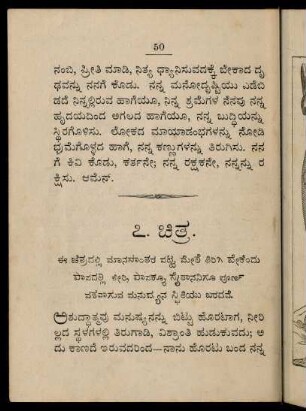 50
ನಂಬಿ, ಪ್ರೀತಿ ಮಾಡಿ, ನಿತ್ಯ ಧ್ಯಾನಿಸುವದಕ್ಕೆ ಬೇಕಾದ ದೃ
ಢವನ್ನು ನನಗೆ ಕೊಡು. ನನ್ನ ಮನೋದೃಷ್ಟಿಯು ಎಡೆಬಿ
ಡದೆ ನಿನ್ನಲ್ಲಿರುವ ಹಾಗೆಯೂ, ನಿನ್ನ ಶ್ರಮೆಗಳ ನೆನಪು ನನ್ನ
ಹೃದಯದಿಂದ ಅಗಲದ ಹಾಗೆಯೂ, ನನ್ನ ಬುದ್ಧಿಯನ್ನು
ಸ್ಥಿರಗೊಳಿಸು. ಲೋಕದ ಮಾಯಾಡಂಭಗಳನ್ನು ನೋಡಿ
ಭ್ರಮೆಗೊಳ್ಳದ ಹಾಗೆ, ನನ್ನ ಕಣ್ಣುಗಳನ್ನು ತಿರುಗಿಸು. ನನ
ಗೆ ಕಿವಿ ಕೊಡು, ಕರ್ತನೇ; ನನ್ನ ರಕ್ಷಕನೇ, ನನ್ನನ್ನು ರ
ಕ್ಷಿಸು. ಆಮೆನ್.
೭. ಚಿತ್ರ.
ಈ ಚಿತ್ರದಲ್ಲಿ ಮಾನಸಾಂತರ ಪಟ್ಟ ಮೇಲೆ ತಿರಿಗಿ ಬೇಕೆಂದು
ಪಾಪದಲ್ಲಿ ಪಾಪಕ್ಕೂ ಸೈತಾನನಿಗೂ ಪೂರ್ಣ
ಮನುಷ್ಯನ ಸ್ಥಿತಿಯು ಬರದದೆ.
ಅಶುದ್ಧಾತ್ಮವು ಮನುಷ್ಯನನ್ನು ಬಿಟ್ಟು ಹೊರಟಾಗ, ನೀರಿ
ಲ್ಲದ ಸ್ಥಳಗಳಲ್ಲಿ ತಿರುಗಾಡಿ, ವಿಶ್ರಾಂತಿ ಹುಡುಕುವದು; ಅ
ದು ಕಾಣದೆ ಇರುವದರಿಂದ—ನಾನು ಹೊರಟು ಬಂದ ನನ್ನ